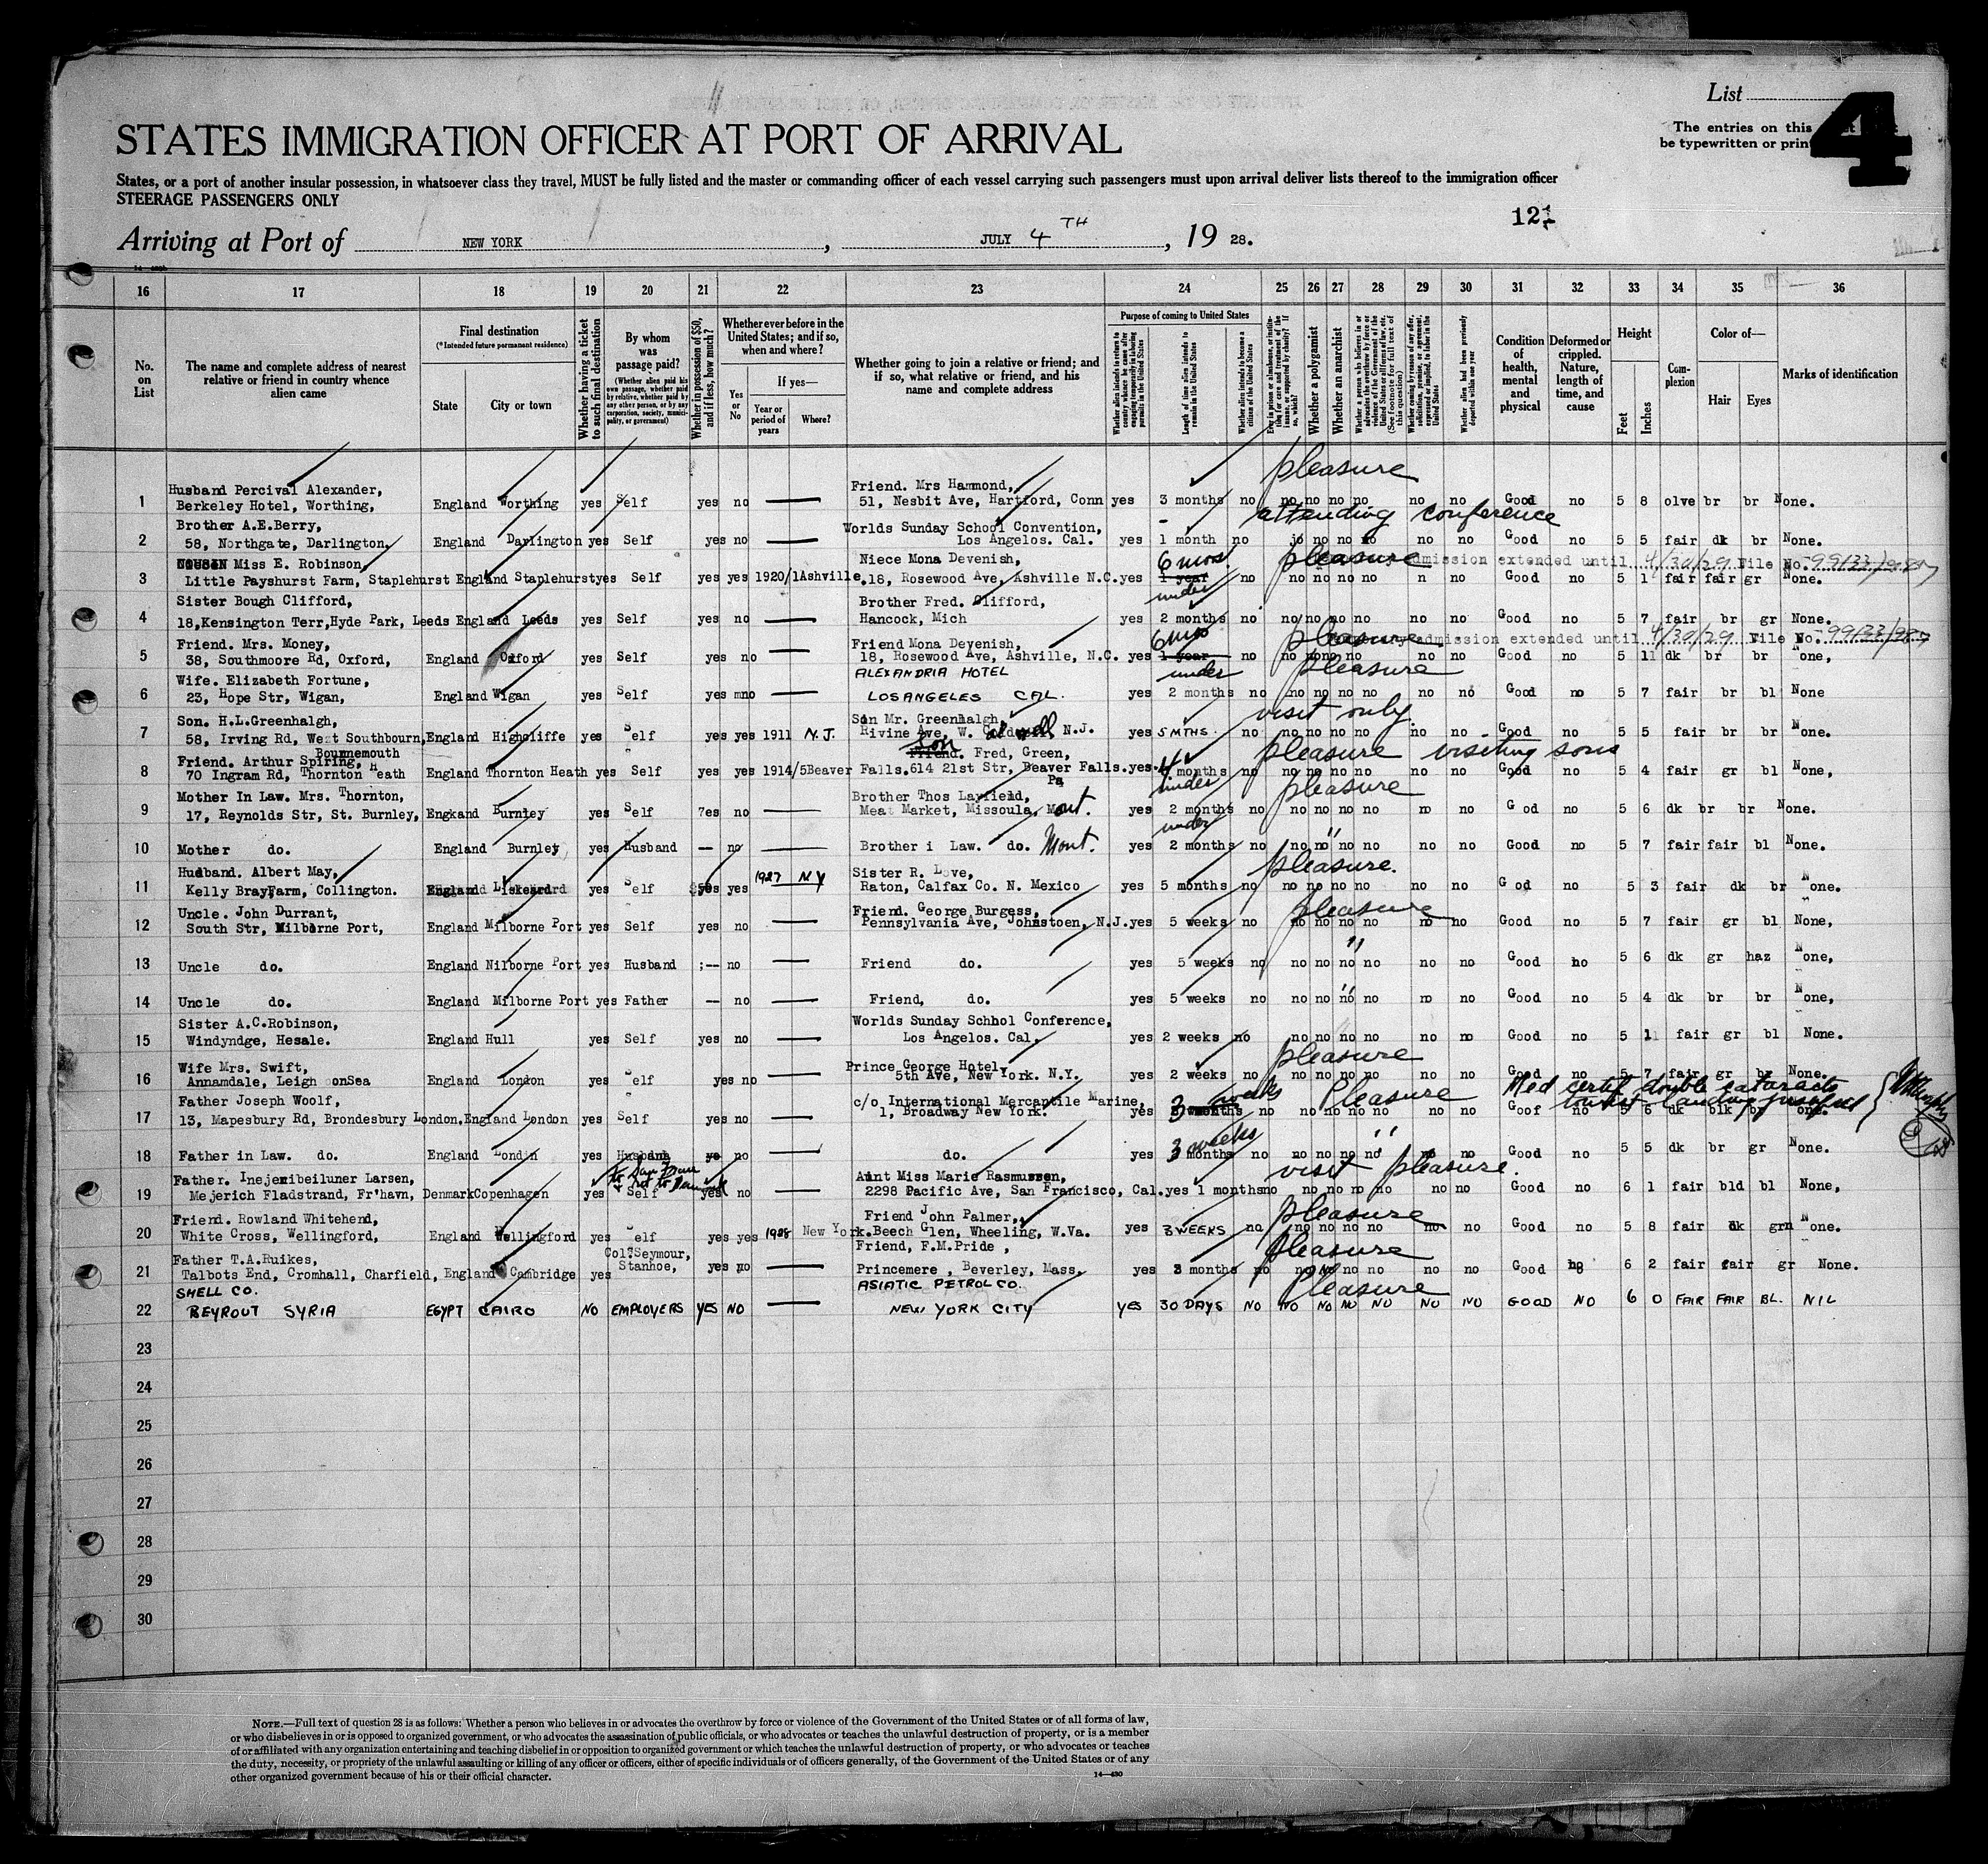 List
4
The entries on this
be typewritten or
STATES IMMIGRATION OFFICER AT PORT OF ARRIVAL
States, or a port of another insular possession, in whatsoever class they travel, MUST be fully listed and the master or commanding officer of each vessel carrying such passengers must upon arrival deliver lists thereof to the immigration officer
STEERAGE PASSENGERS ONLY
Arriving at Port of NEW YORK, JULY 4TH, 19 28.
16 17 18 19 20 21 22 23 24 25 26 27 28 29 30 31 32 33 34 35 36
No. on List
The name and complete address of nearest relative or friend in country whence alien came
Final destination
(*Intended future permanent residence)
State
City or town
Whether having a ticket to such final destination
By whom was passage paid?
(Whether alien paid his own passage, whether paid by relative, whether paid by any other person, or by any corporation, society, municipality, or government)
Whether in possession of $50, and if less, how much?
Whether ever before in the United States; and if so, when and where?
Yes or No
If yes—
Year or period of years
Where?
Whether going to join a relative or friend; and if so, what relative or friend, and his name and complete address
Purpose of coming to United States
Whether alien intends to return to country whence he came after engaging temporarily in laboring pursuits in the United States
Length of time alien intends to remain in the United States
Whether alien intends to become a citizen of the United States
Ever in prison or almshouse, or institution for care and treatment of the insane, or supported by charity? If so, which?
Whether a polygamist
Whether an anarchist
Whether a person who believes in or advocates the overthrow by force or violence of the Government of the United States or all forms of law, etc. (See footnote for full text of this question)
Whether coming by reason of any offer, solicitation, promise, or agreement, expressed or implied, to labor in the United States
Whether alien had been previously deported within one year
Condition of health, mental and physical
Deformed or crippled. Nature, length of time, and cause
Height
Feet
Inches
Complexion
Color of—
Hair
Eyes
Marks of identification
pleasure
Husband Percival Alexander, Friend. Mrs Hammond,
1 Berkeley Hotel, Worthing, England Worthing yes Self yes no — 51, Nesbit Ave, Hartford, Conn yes 3 months no no no no no no no Good no 5 8 olve br br None.
attending conference
Brother A.E.Berry, Worlds Sunday School Convention,
2 58, Northgate, Darlington. England Darlington yes Self yes no — Los Angelos. Cal. yes 1 month no no no no no no Good no 5 5 fair dk br None.
COUSIN Miss E. Robinson, Niece Mona Devenish, 6 mos. pleasure admission extended until 4/30/29 File No. 99133/987
3 Little Payshurst Farm, Staplehurst England Staplehurst yes Self yes yes 1920/1 Ashville. 18, Rosewood Ave, Ashville N.C. yes 1 year no no no no no n no Good no 5 1 fair fair gr None.
Sister Bough Clifford, Brother Fred. Clifford, under
4 18, Kensington Terr, Hyde Park, Leeds England Leeds yes Self yes no — Hancock, Mich yes 2 months no no no no no no no Good no 5 7 fair br gr None.
Friend. Mrs. Money, Friend Mona Devenish, 6 mos pleasure admission extended until 4/30/29 File No. 99133/987
5 38, Southmoore Rd, Oxford, England Oxford yes Self yes no — 18, Rosewood Ave, Ashville, N.C. yes 1 year no no no no no no no Good no 5 11 dk br br None,
Wife. Elizabeth Fortune, ALEXANDRIA HOTEL under pleasure
6 23, Hope Str, Wigan, England Wigan yes Self yes no — LOSANGELES CAL. yes 2 months no no no no no no no Good no 5 7 fair br bl None
Son. H.L.Greenhalgh, Son Mr. Greenhalgh, visit only.
7 58, Irving Rd, West Southbourn, England Highcliffe yes Self yes yes 1911 N.J. Rivine Ave, W. Caldwell N.J. yes 5 MTHS. no no no no no no no Good no 5 5 fair br br None.
Bournemouth
Friend. Arthur Spiring, Son Friend. Fred, Green, pleasure visiting sons
8 70 Ingram Rd, Thornton Heath England Thornton Heath yes Self yes yes 1914/5 Beaver Falls. 614 21st Str, Beaver Falls. Pa yes 4 months no no no no no no no Good no 5 4 fair gr bl None,
Mother In Law. Mrs. Thornton, Brother Thos Layfield, under pleasure
9 17, Reynolds Str, St. Burnley, Engkand Burnley yes Self 7es no — Meat Market, Missoula, Mont. yes 2 months no no no no no no no G od no 5 6 dk br br None.
under "
10 Mother do. England Burnley yes Husband — no — Brother i Law. do. Mont. yes 2 months no no no no no no no Good no 5 7 fair fair bl None.
Hudband. Albert May, Sister R. Love, pleasure.
11 Kelly Bray,Farm, Collington. England Liskeard yes Self $50 yes yes 1927 NY Raton, Calfax Co. N. Mexico yes 5 months no no no no no no no G od no 5 3 fair dk br None.
Uncle. John Durrant, Friend. George Burgess, pleasure
12 South Str, Milborne Port, England Milborne Port yes Self yes no — Pennsylvania Ave, Johnstoen, N.J. yes 5 weeks no no no no no no no Good no 5 7 fair gr bl None,
13 Uncle do. England Nilborne Port yes Husband ;-- no — Friend do. yes 5 weeks no no no no no no no Good no 5 6 dk gr haz None,
14 Uncle do. England Milborne Port yes Father -- no — Friend, do. yes 5 weeks no no no no no no no Good no 5 4 dk br br None,
Sister A.C.Robinson, Worlds Sunday Schhol Conference,
15 Windyndge, Hesale. England Hull yes Self yes no — Los Angelos. Cal. yes 2 weeks no no no no no no no Good no 5 1 fair gr bl None.
Wife Mrs. Swift, Prince George Hotel, pleasure
16 Annamdale, Leigh onSea England London yes Self yes no — 5th Ave, New York. N.Y. yes 2 weeks no no no no no no no Good no 5 7 fair gr br None.
Father Joseph Woolf, c/o International Mercantile Marine, 3 weeks Pleasure Med certif double cataracts
17 13, Mapesbury Rd, Brondesbury London. England London yes Self yes no — 1, Broadway New York. yes 3 months no no no no no no no Goof no 5 6 dk blk br None. tourist landing
18 Father in Law. do. England London yes Husband no — do. yes 3 weeks months no no no no no no no Good no 5 5 dk br gr None.
Father. Inejemibeiluner Larsen, to San Fran Aint Miss Marie Rasmussen, visit pleasure.
19 Mejerich Fladstrand, Fr'havn, Denmark Copenhagen yes Self yes no — 2298 Pacific Ave, San Francisco, Cal. yes 1 months no no no no no no no Good no 6 1 fair bld bl None,
Friend. Rowland Whitehend, Friend John Palmer, pleasure
20 White Cross, Wellingford, England Wellingford yes Self yes yes 1928 New York. Beech Glen, Wheeling, W.Va. yes 3 WEEKS no no no no no no no Good no 5 8 fair dk grn None.
Father T.A.Ruikes, Col. Seymour, Friend, F.M.Pride, pleasure
21 Talbots End, Cromhall, Charfield, England Cambridge yes Stanhoe, yes no — Princemere, Beverley, Mass. yes 3 months no no no no no no no Good no 6 2 fair fair gr None.
SHELL CO. ASIATIC PETROL CO. pleasure
22 BEYROUT SYRIA EGYPT CAIRO NO EMPLOYERS YES NO — NEW YORK CITY YES 30 DAYS NO NO NO NO NO NO NO GOOD NO 6 0 FAIR FAIR BL. NIL
23
24
25
26
27
28
29
30
NOTE.—Full text of question 28 is as follows: Whether a person who believes in or advocates the overthrow by force or violence of the Government of the United States or of all forms of law,
or who disbelieves in or is opposed to organized government, or who advocates the assassination of public officials, or who advocates or teaches the unlawful destruction of property, or is a member
of or affiliated with any organization entertaining and teaching disbelief in or opposition to organized government or which teaches the unlawful destruction of property, or who advocates or teaches
the duty, necessity, or propriety of the unlawful assaulting or killing of any officer or officers, either of specific individuals or of officers generally, of the Government of the United States or of any
other organized government because of his or their official character.
14—430